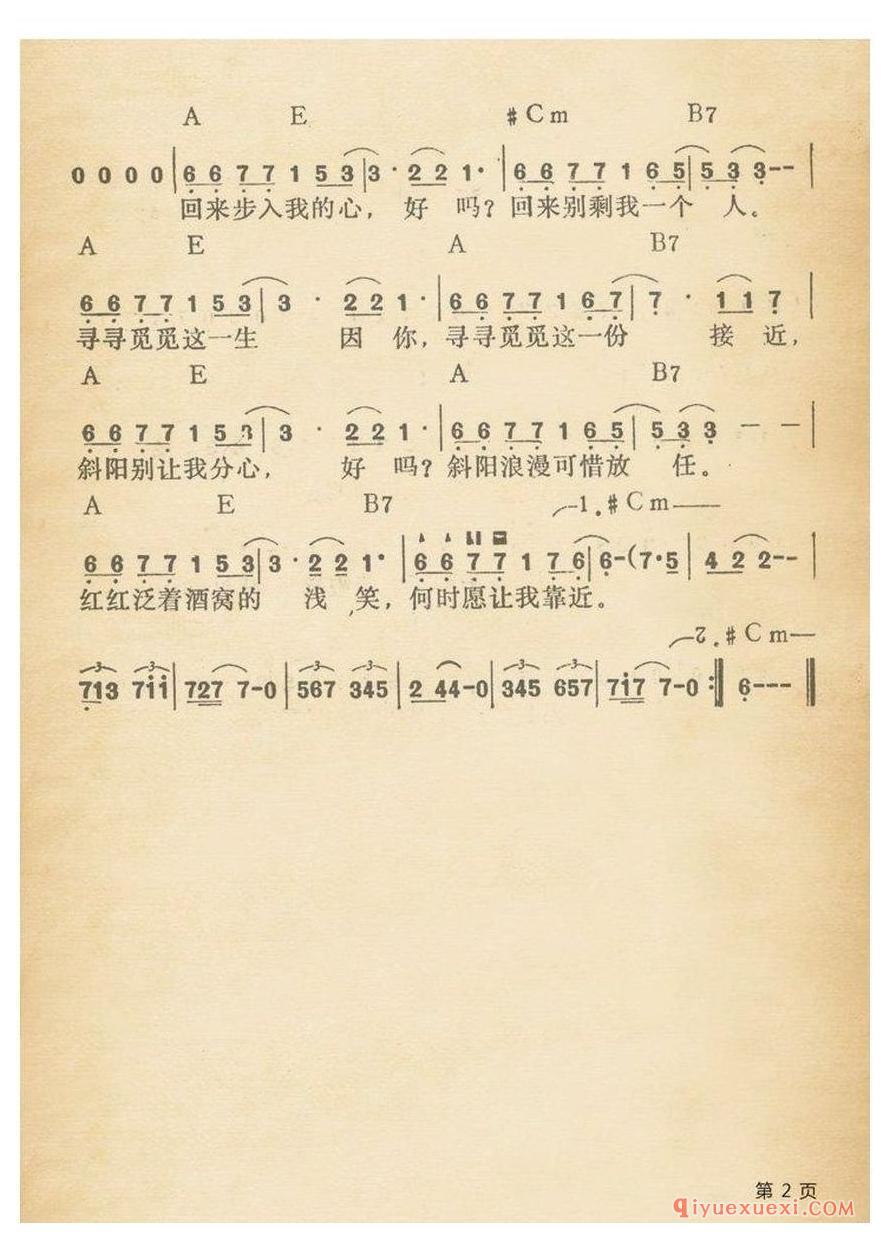 A E #Cm B7
0 0 0 0 | 6 6 7 7 1 5 3 | 3 · 2 2 1 · | 6 6 7 7 1 6 5 | 5 3 3 - - |
回来步入我的心，好 吗？回来别剩我一个 人。
A E A B7
6 6 7 7 1 5 3 | 3 · 2 2 1 · | 6 6 7 7 1 6 7 | 7 · 1 1 7 |
寻寻觅觅这一生 因 你，寻寻觅觅这一份 接 近，
A E A B7
6 6 7 7 1 5 3 | 3 · 2 2 1 · | 6 6 7 7 1 6 5 | 5 3 3 - - |
斜阳别让我分心， 好 吗？斜阳浪漫可惜放 任。
A E B7 1. #Cm
6 6 7 7 1 5 3 | 3 · 2 2 1 · | 6 6 7 7 1 7 6 | 6 - (7 · 5 | 4 2 2 - - |
红红泛着酒窝的 浅 笑，何时愿让我靠近。
2. #Cm
3 3 3 3
713 7ii | 727 7-0 | 567 345 | 2 44-0 | 345 657 | 7i7 7-0 :| 6--- ||
第 2 页
qiyuexuexi.com